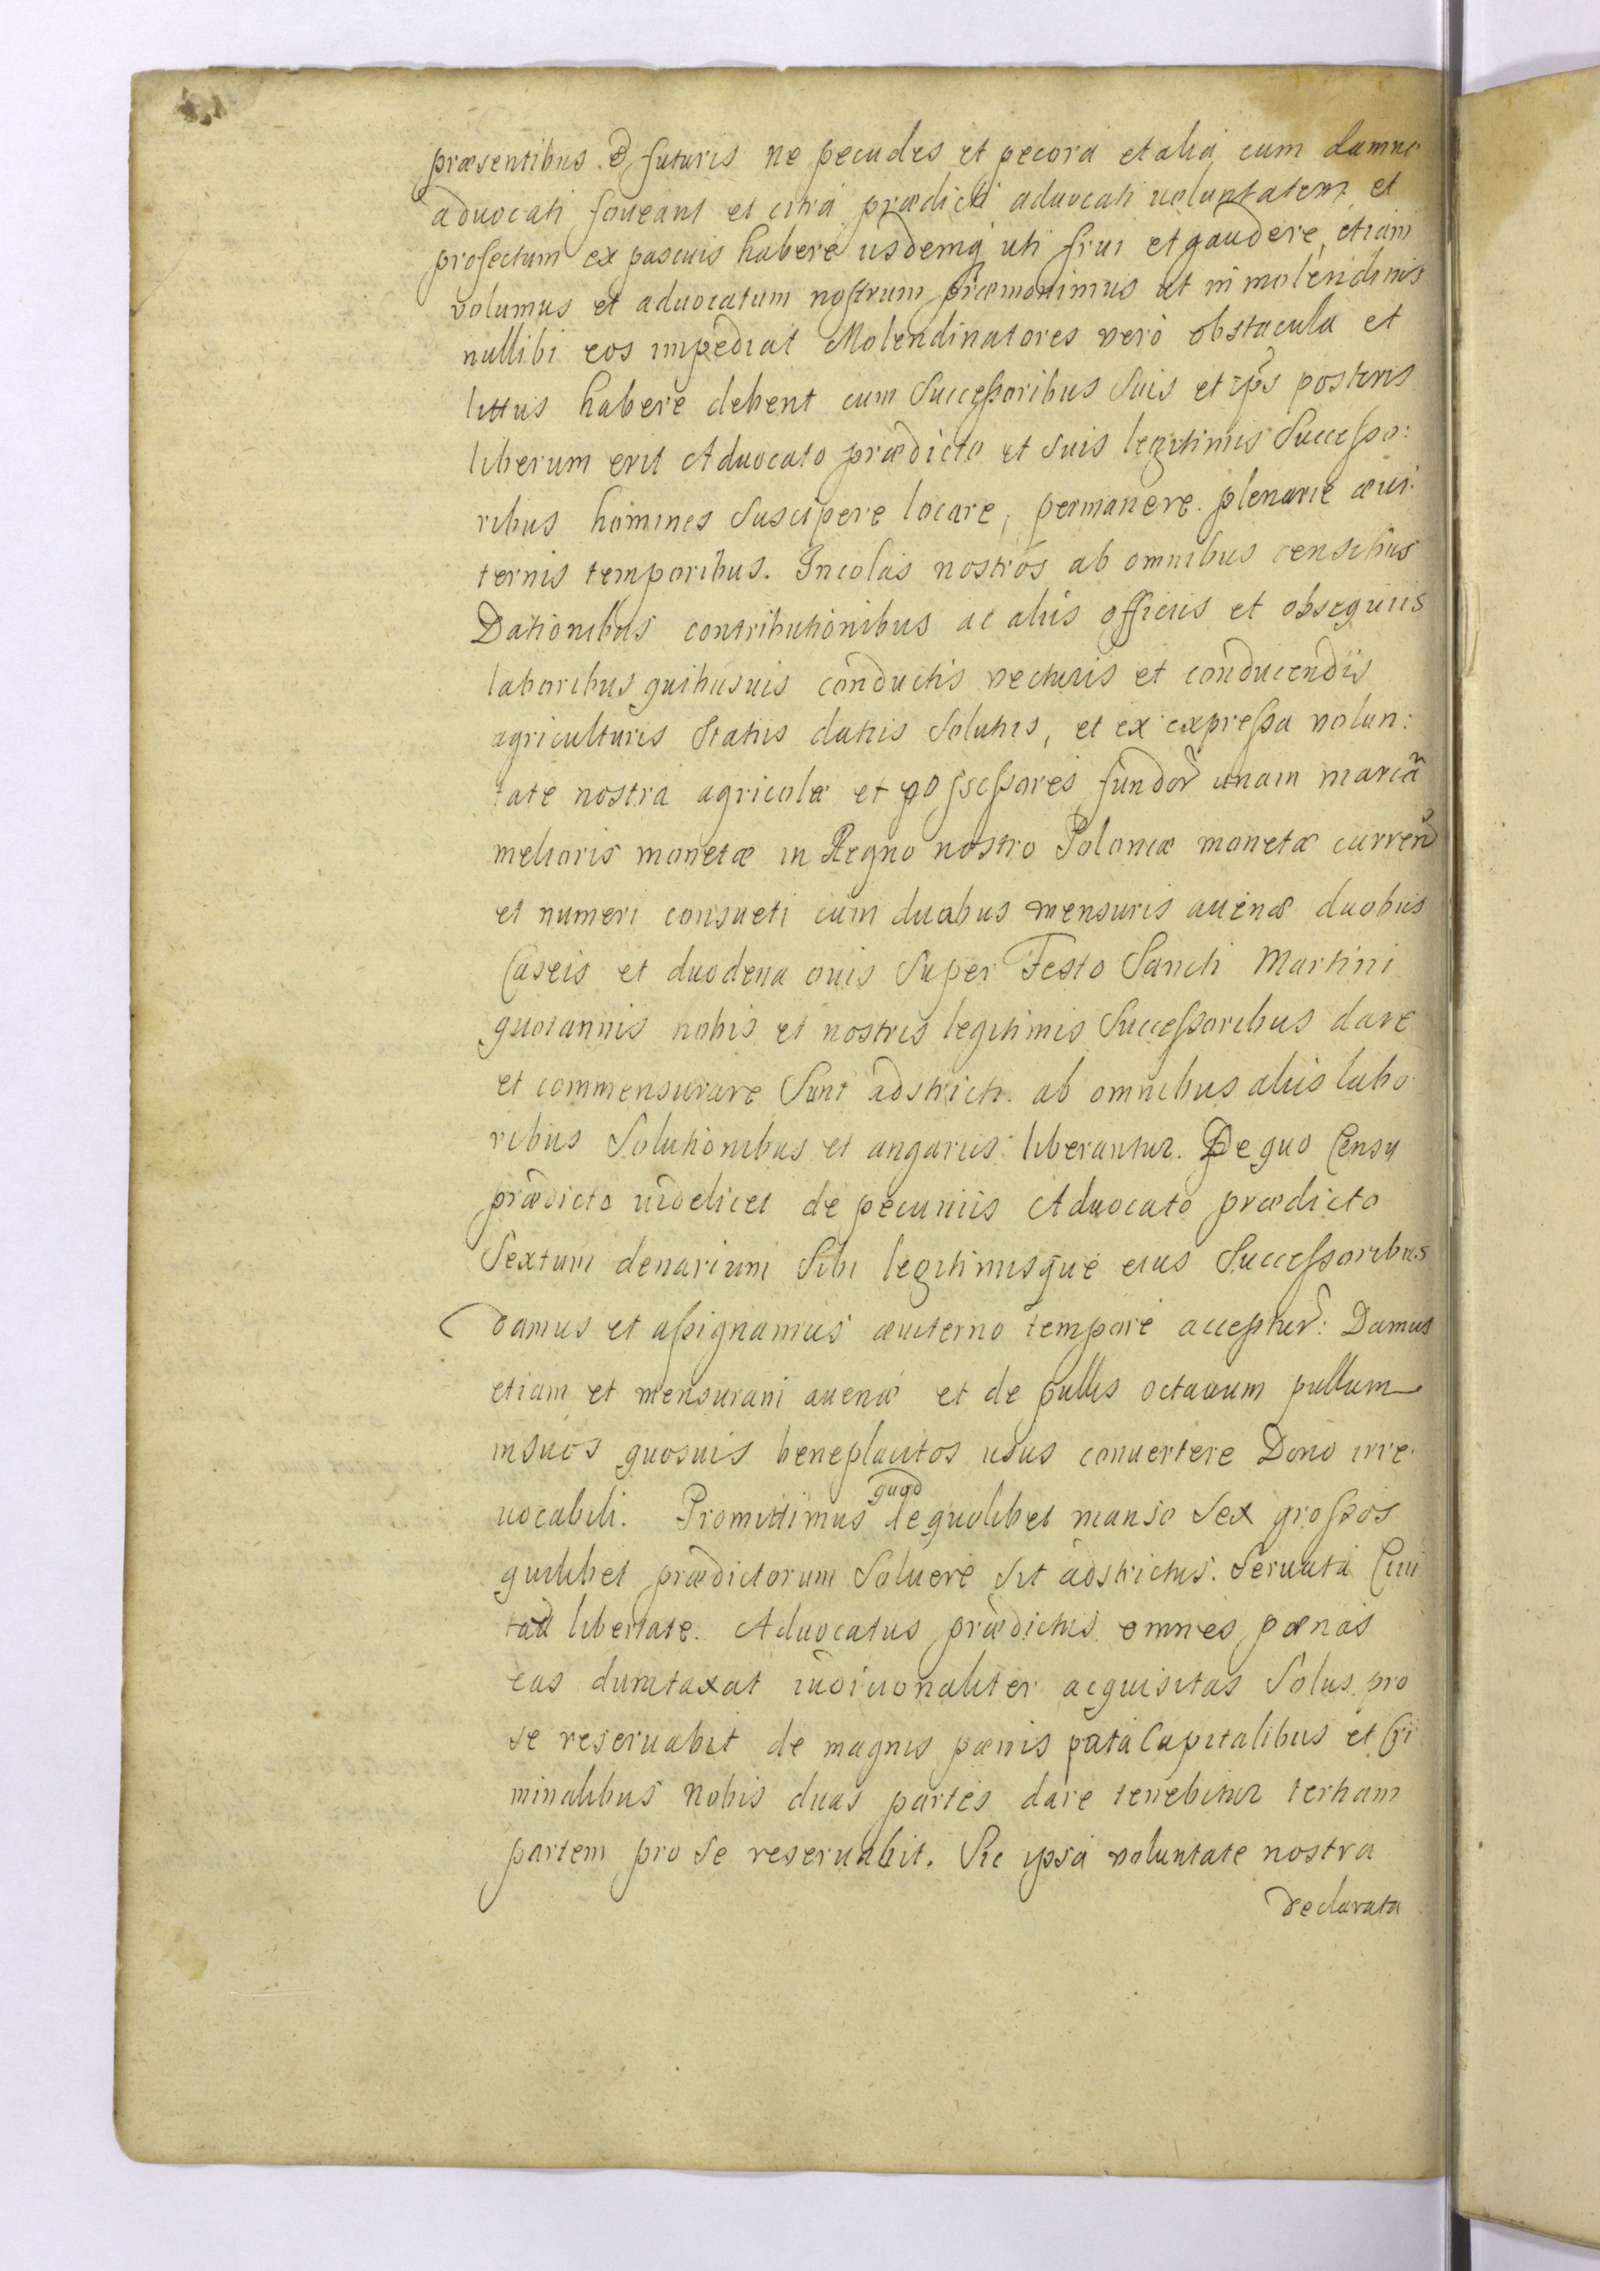 præsentibus & futuris ne pecudes et pecora et alia cum damno
aduocati foueant et citra prædicti aduocati uoluntatem et
profectum ex pascuis habere iisdemq uti frui et gaudere, etiam
volumus et aduocatum nostrum præmonimus ut in molendinis
nullibi eos impediat Molendinatores vero obstacula et
littus habere debent cum Successoribus Suis et ips posteris
liberum erit Aduocato prædicto et Suis legitimis Successo:
ribus homines Suscipere locare, permanere plenarie æui
ternis temporibus. Incolas nostros ab omnibus censibus
Dationibus contributionibus ac aliis officiis et obsequiis
laboribus quibusuis conductis vecturis et conducendis
agriculturis Statiis datiis Solutis, et ex expressa volun:
tate nostra agricolæ et possessores fundor unam marcã
melioris monetæ in Regno nostro Poloniæ monetæ curren
et numeri consueti cum duabus mensuris auenæ duobus
Caseis et duodena ouis Super Festo Sancti Martini
quotannis nobis et nostris legitimis Successoribus dare
et commensurare Sunt adstricti. ab omnibus aliis labo
ribus Solutionibus et angariis liberantur. De quo Censu
prædicto uidelicet de pecuniis Aduocato prædicto
Sextum denarium Sibi legitimisque eius Successoribus
damus et assignamus æuiterno tempore acceptur: Damus
etiam et mensuram auenæ et de pullis octauum pullum
in suos quosuis beneplacitos usus conuertere Dono irre
uocabili. Promittimus quod de quolibet manso Sex grossos
quilibet prædictorum Soluere Sit adstrictus. Seruata Ciui
tad libertate. Aduocatus prædictus omnes pænas
eas dumtaxat iudicionaliter acquisitas Solus pro
se reseruabit de magnis pænis puta Capitalibus et Cri
minalibus Nobis duas partes dare tenebitur tertiam
partem pro Se reseruabit. Sic ipsa voluntate nostra
declarata